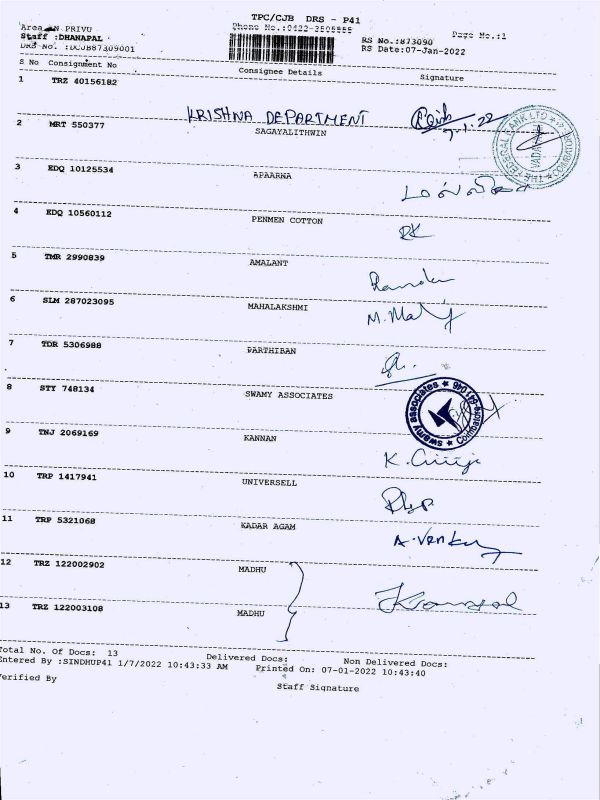 TPC/CJB DRS - P41
Area : N PRIVU
Phone No.:0422-3505555
Page No.:1
Staff :DHANAPAL
RS No.:873090
DRS No. :DCJB87309001
RS Date:07-Jan-2022
S No Consignment No Consignee Details Signature
1 TRZ 40156182
KRISHNA DEPARTMENT
7-1-22
2 MRT 550377 SAGAYALITHWIN
THE FEDERAL BANK LTD
3 EDQ 10125534 APAARNA
4 EDQ 10560112 PENMEN COTTON
RK
5 TMR 2990839 AMALANT
6 SLM 287023095 MAHALAKSHMI
7 TDR 5306988 PARTHIBAN
8 STY 748134 SWAMY ASSOCIATES
swamy associates ★ Coimbatore-641 046 ★
9 TNJ 2069169 KANNAN
10 TRP 1417941 UNIVERSELL
11 TRP 5321068 KADAR AGAM
12 TRZ 122002902 MADHU
13 TRZ 122003108 MADHU
Total No. Of Docs: 13 Delivered Docs: Non Delivered Docs:
Entered By :SINDHUP41 1/7/2022 10:43:33 AM Printed On: 07-01-2022 10:43:40
Verified By Staff Signature